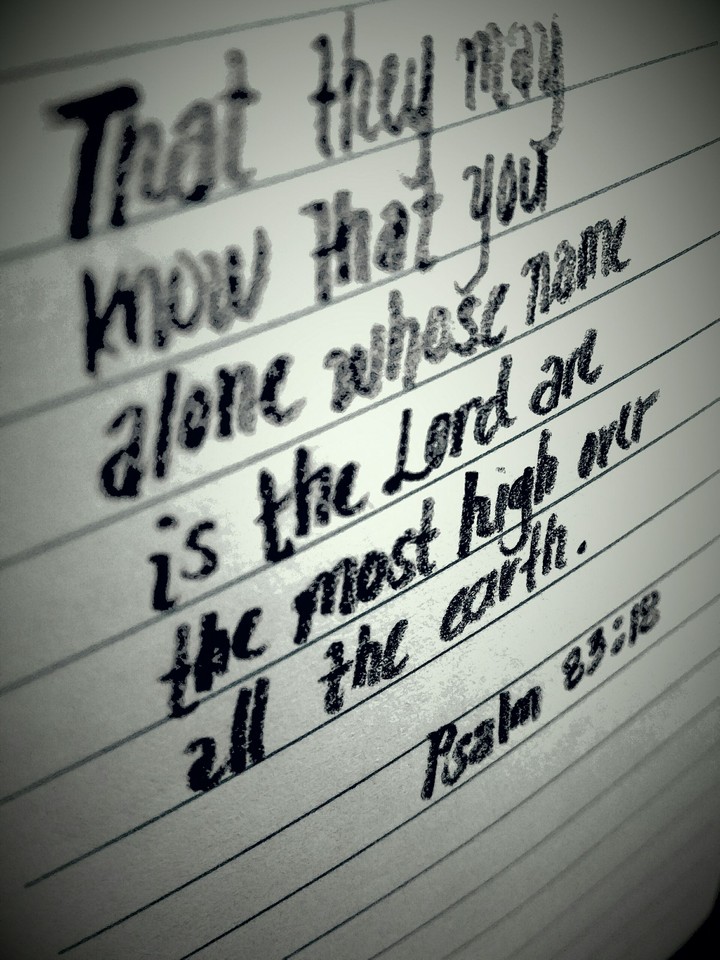 That they may
know that you
alone whose name
is the Lord are
the most high over
all the earth.
Psalm 83:18